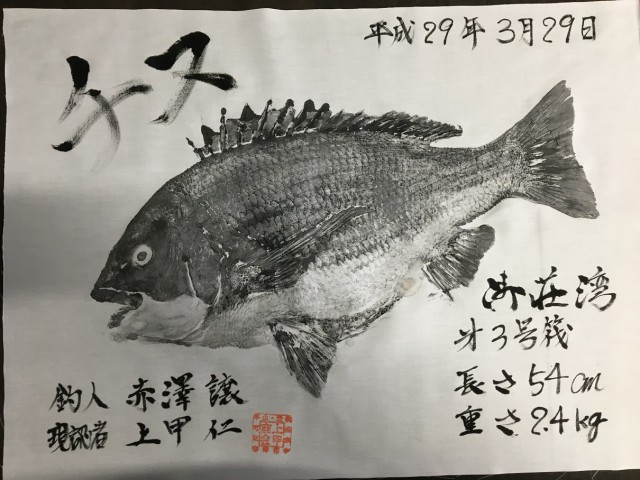 平成29年3月29日
ケス
御荘湾
才3号筏
長さ54cm
重さ2.4kg
釣人 赤澤 譲
現認者 上甲 仁